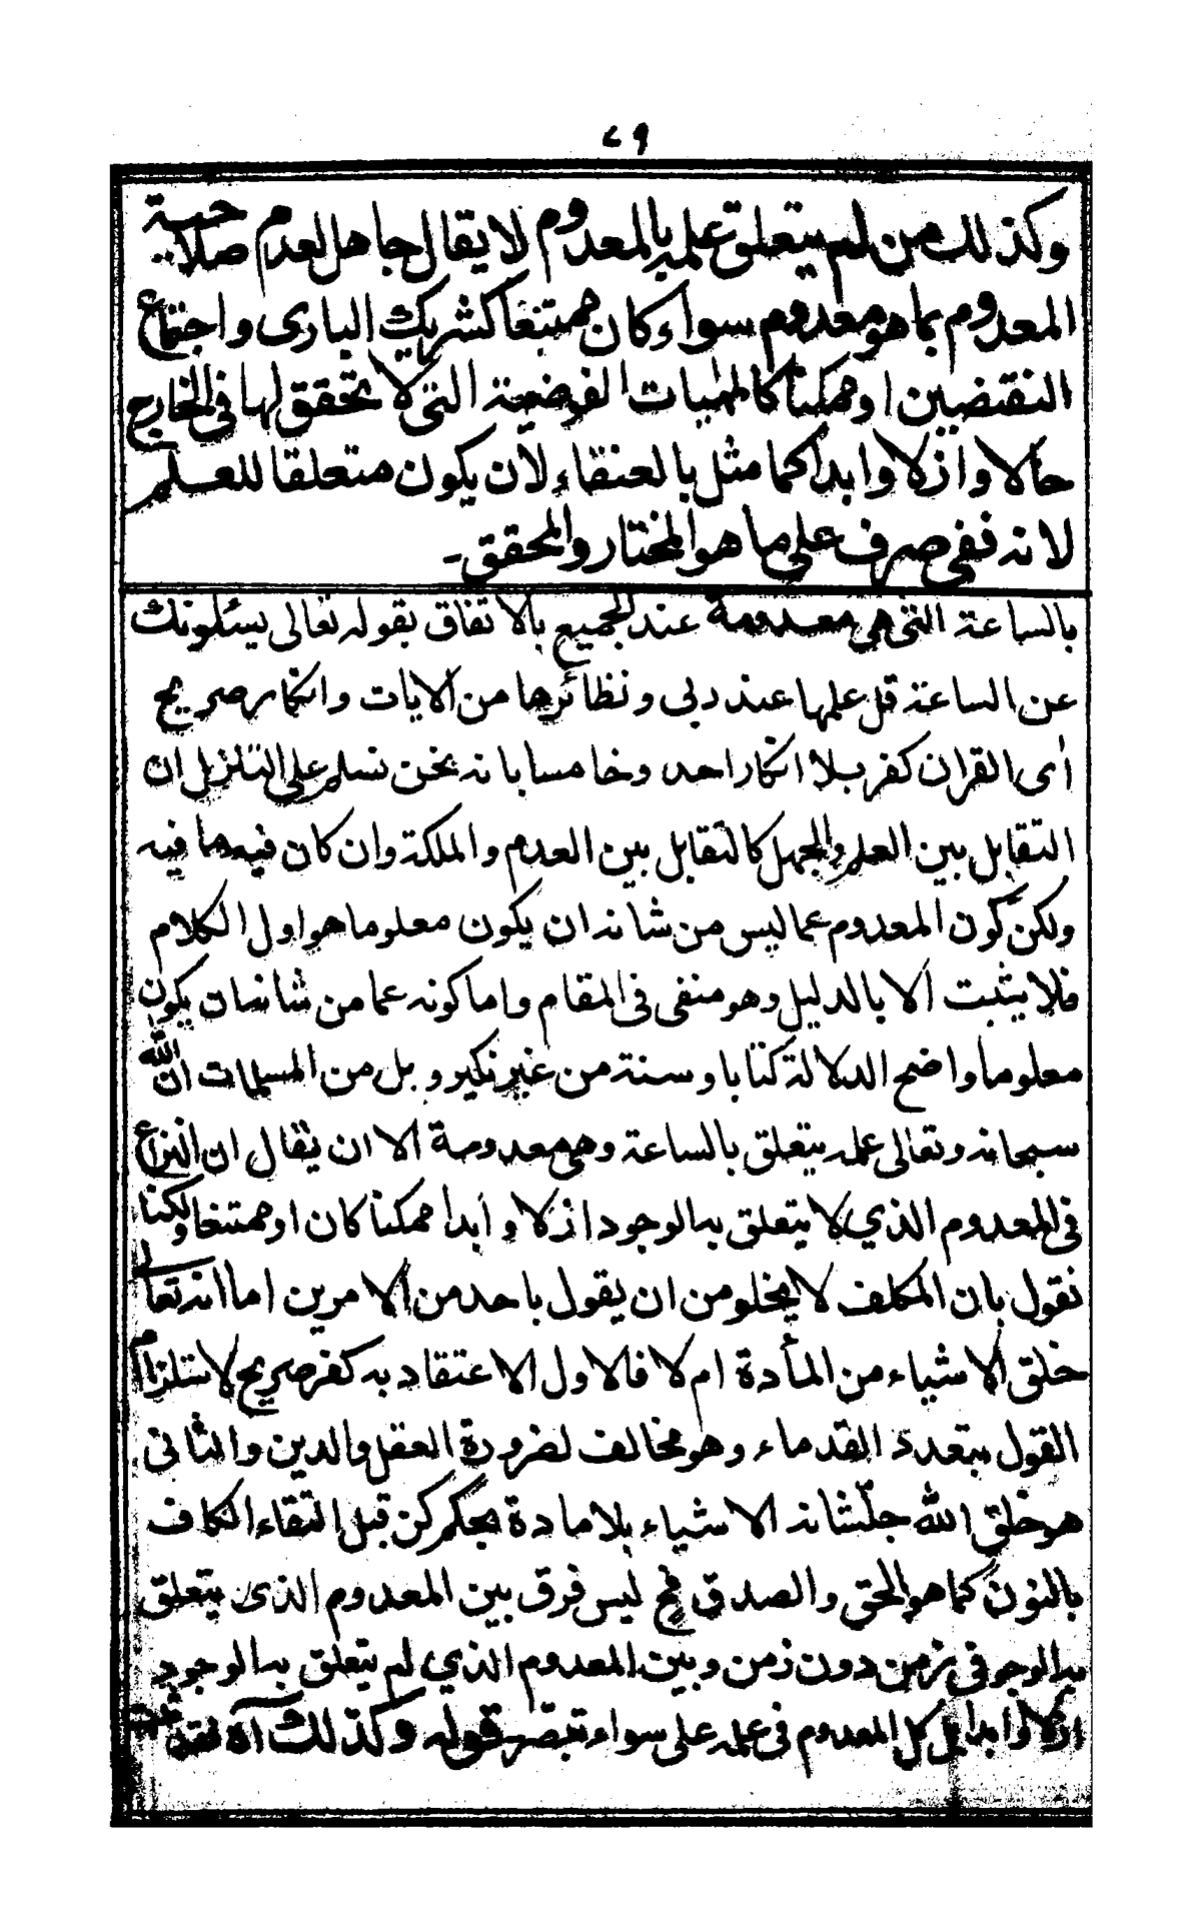 ٢٩
وكذلك من لم يتعلق علمه بالمعدوم لا يقال جاهل لعدم صلاحية
المعدوم بما هو معدوم سواء كان ممتنعا كشريك البارى واجتماع
النقتضيين او ممكنا كالمهيات الفرضية التى لا تحقق لها فى الخارج
حالا وازلا وابدا كما مثل بالعنقاء لان يكون متعلقا للعلم
لانه نفى صرف على ما هو المختار والمحقق ـ
بالساعة التى هى معدومة عند الجميع بالاتفاق بقوله تعالى يسئلونك
عن الساعة قل علمها عند ربى ونظائرها من الايات وانكار صريح
أى القران كفر بلا انكار احد وخامسا بانه نحن نسلم على التنزيل ان
التقابل بين العلم والجهل كالتقابل بين العدم والملكة وان كان فيه ما فيه
ولكن كون المعدوم عما ليس من شانه ان يكون معلوما هو اول الكلام
فلا يثبت الا بالدليل وهو منفى فى المقام واما كونه عما من شانه ان يكون
معلوما واضح الدلالة كتابا وسنة من غير نكير وبل من المسلمات ان الله
سبحانه وتعالى علمه يتعلق بالساعة وهى معدومة الا ان يقال ان النزاع
فى المعدوم الذي لا يتعلق به الوجود ازلا وأبدا ممكنا كان او ممتنعا ولكنا
نقول بان المكلف لا يخلو من ان يقول باحد من الامرين اما انه تعالى
خلق الاشياء من المأدة ام لا فالاول الاعتقاد به كفر صريح لاستلزام
القول بتعدد القدماء وهو مخالف لضرورة العقل والدين والثانى
هو خلق الله جلّشانه الاشياء بلا مادة بحكم كن قبل التقاء الكاف
بالنون كما هو الحق والصدق فح ليس فرق بين المعدوم الذى يتعلق
به الوجو فى زمن دون زمن وبين المعدوم الذي لم يتعلق به الوجود
ازلا وابدا بل كل المعدوم فى علمه على سواء تبصر قوله وكذلك آه فقد